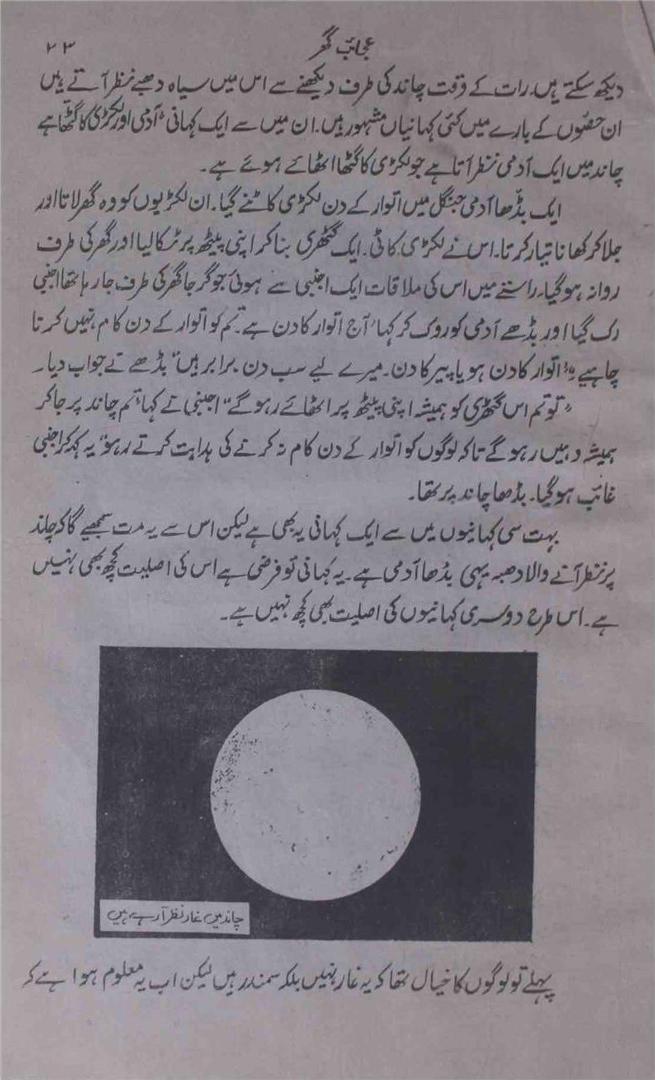 عجائب گھر
۲۳
دیکھ سکتے ہیں۔ رات کے وقت چاند کی طرف دیکھنے سے اس میں سیاہ دھبے نظر آتے ہیں
ان حصّوں کے بارے میں کئی کہانیاں مشہور ہیں۔ ان میں سے ایک کہانی "آدمی اور لکڑی کا گٹھا ہے
چاند میں ایک آدمی نظر آتا ہے جو لکڑی کا گٹھا اٹھائے ہوئے ہے۔
ایک بڈھا آدمی جنگل میں اتوار کے دن لکڑی کاٹنے گیا۔ ان لکڑیوں کو وہ گھر لاتا اور
جلا کر کھانا تیار کرتا۔ اس نے لکڑی کاٹی۔ ایک گٹھری بنا کر اپنی پیٹھ پر لٹکا لیا اور گھر کی طرف
روانہ ہو گیا۔ راستے میں اس کی ملاقات ایک اجنبی سے ہوئی جو گرجا گھر کی طرف جا رہا تھا اجنبی
رک گیا اور بڈھے آدمی کو روک کر کہا "آج اتوار کا دن ہے۔ تم کو اتوار کے دن کام نہیں کرنا
چاہیے" "اتوار کا دن ہو یا پیر کا دن۔ میرے لیے سب دن برابر ہیں" بڈھے نے جواب دیا۔
"تو تم اس گٹھری کو ہمیشہ اپنی پیٹھ پر اٹھائے رہو گے" اجنبی نے کہا "تم چاند پر جا کر
ہمیشہ وہیں رہو گے تاکہ لوگوں کو اتوار کے دن کام نہ کرنے کی ہدایت کرتے رہو" یہ کہہ کر اجنبی
غائب ہو گیا۔ بڈھا چاند پر تھا۔
بہت سی کہانیوں میں سے ایک کہانی یہ بھی ہے لیکن اس سے یہ مت سمجھیے گا کہ چاند
پر نظر آنے والا دھبہ یہی بڈھا آدمی ہے۔ یہ کہانی تو فرضی ہے اس کی اصلیت کچھ بھی نہیں
ہے۔ اس طرح دوسری کہانیوں کی اصلیت بھی کچھ نہیں ہے۔
چاند میں غار نظر آ رہے ہیں
پہلے تو لوگوں کا خیال تھا کہ یہ غار نہیں بلکہ سمندر ہیں لیکن اب یہ معلوم ہوا ہے کہ